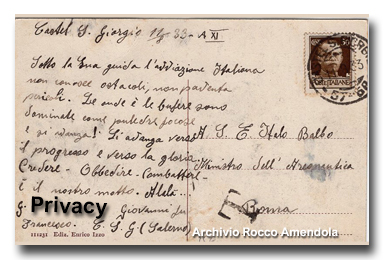 Castel S. Giorgio 33 - A XI
Sotto la Sua guida l'aviazione Italiana
non conosce ostacoli, non paventa
pericoli. Le onde e le bufere sono
dominate come
e si avanza! Si avanza verso
il progresso e verso la gloria
Credere - Obbedire - Combattere -
è il nostro motto. Alalà...
G. Giovanni fu
Francesco. C. S. G (Salerno)
A. S. E. Italo Balbo
Ministro dell' Areonautica
Roma
Privacy
111251 Ediz. Enrico Izzo
Archivio Rocco Amendola